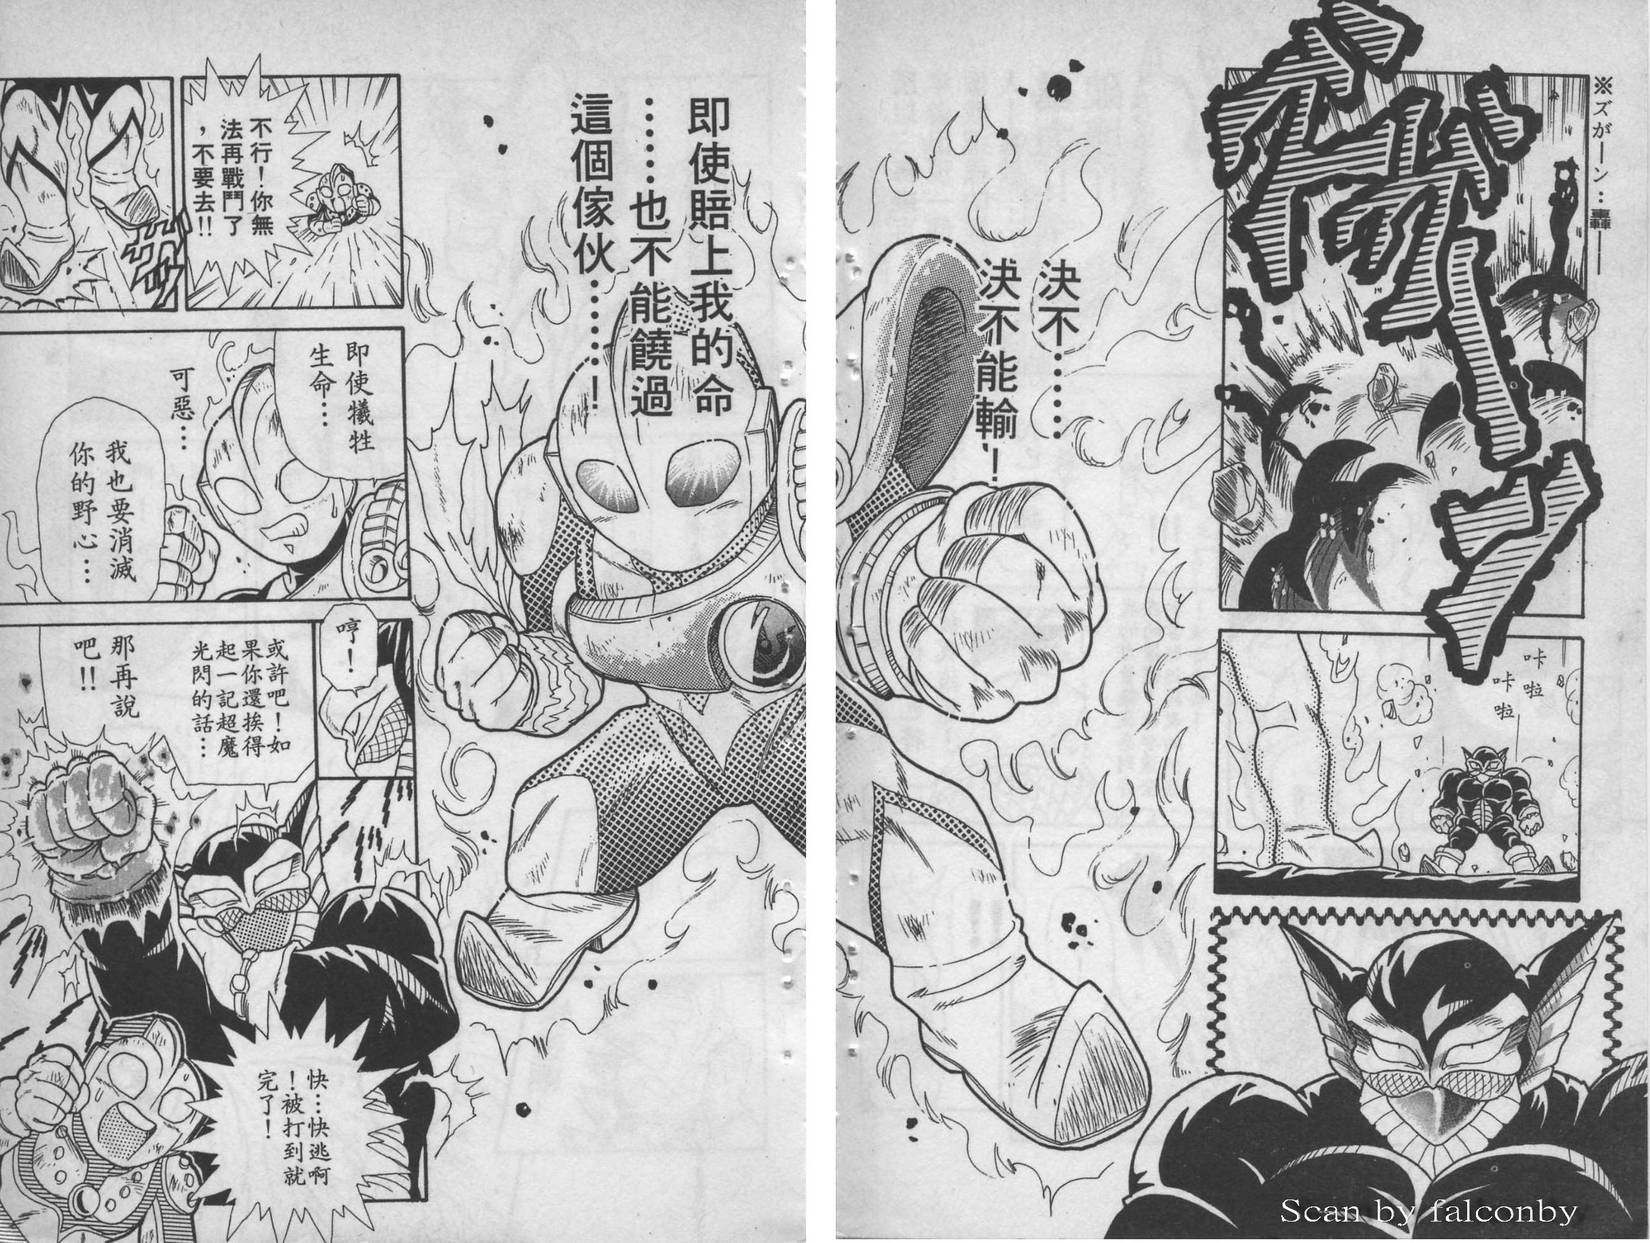 ※ズガーン：轟——
ズガーン
咔啦
咔啦
決不……
決不能輸！
Scan by falconby
即使賠上我的命
……也不能饒過
這個傢伙……！
不行！你無
法再戰鬥了
，不要去!!
即使犧牲
生命…
可惡…
我也要消滅
你的野心…
哼！
或許吧！如
果你還挨得
起一記超魔
光閃的話…
那再說
吧!!
快…快逃啊
！被打到就
完了！